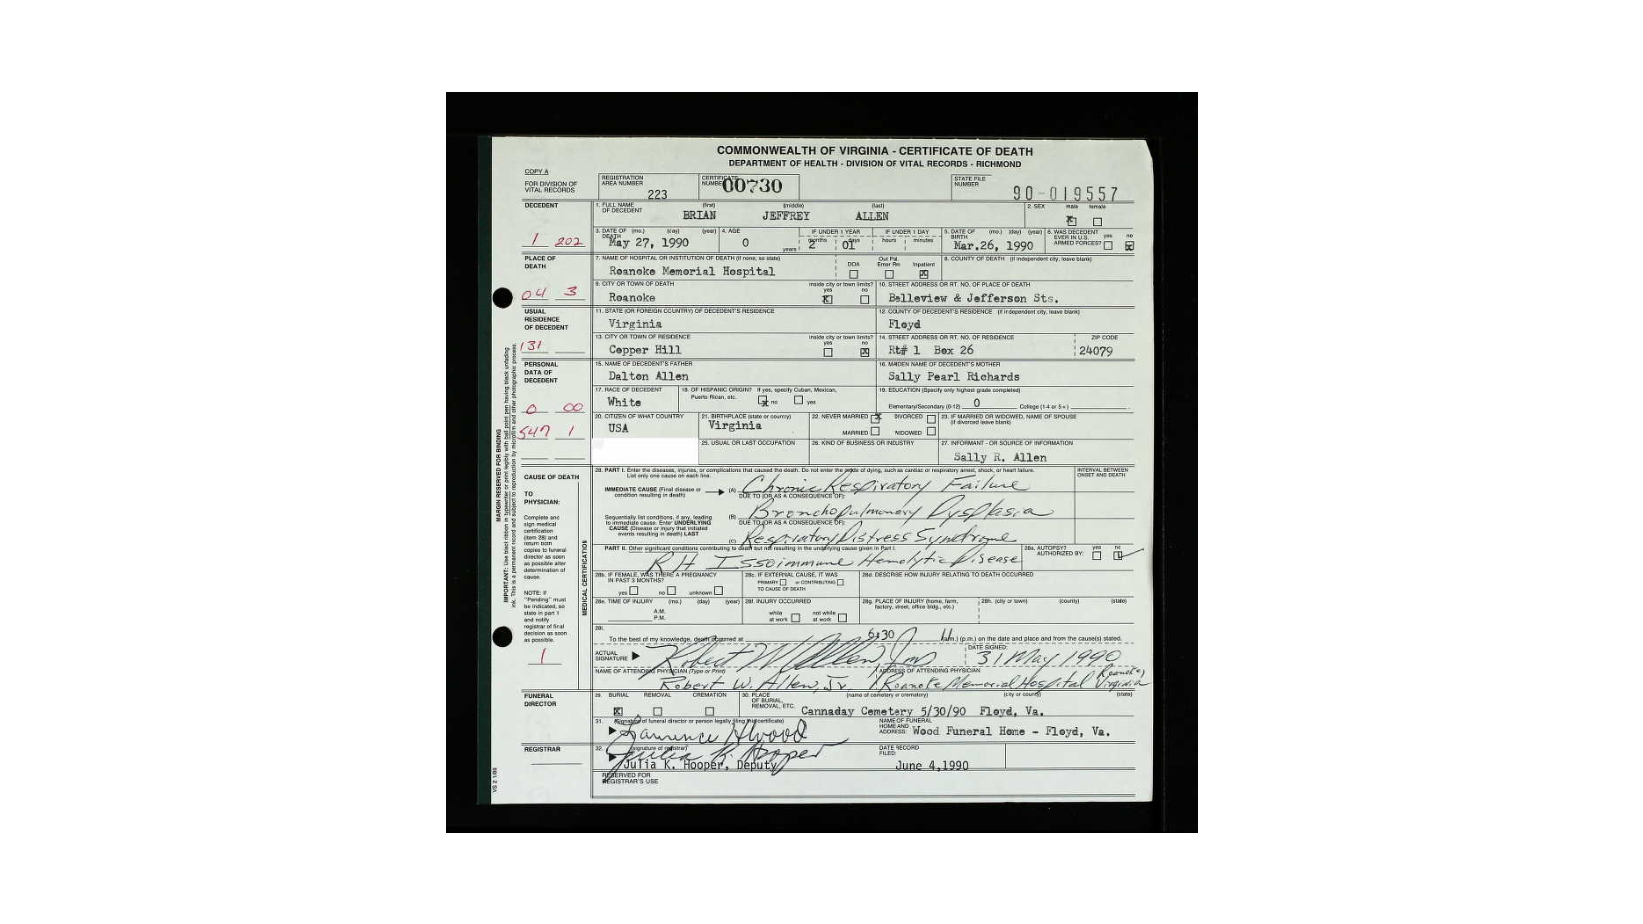 COMMONWEALTH OF VIRGINIA - CERTIFICATE OF DEATH
DEPARTMENT OF HEALTH - DIVISION OF VITAL RECORDS - RICHMOND
COPY A
FOR DIVISION OF VITAL RECORDS
REGISTRATION AREA NUMBER 223
CERTIFICATE NUMBER 00730
STATE FILE NUMBER 90-019557
DECEDENT
1. FULL NAME OF DECEDENT (first) (middle) (last)
BRIAN JEFFREY ALLEN
2. SEX male female
1 202
3. DATE OF DEATH (mo.) (day) (year) May 27, 1990
4. AGE 0 years
IF UNDER 1 YEAR months days 2 01
IF UNDER 1 DAY hours minutes
5. DATE OF BIRTH (mo.) (day) (year) Mar.26, 1990
6. WAS DECEDENT EVER IN U.S. ARMED FORCES? yes no
PLACE OF DEATH
7. NAME OF HOSPITAL OR INSTITUTION OF DEATH (if none, so state)
Roanoke Memorial Hospital
DOA Out Pat. Emer Rm Inpatient
8. COUNTY OF DEATH (if independent city, leave blank)
04 3
9. CITY OR TOWN OF DEATH Roanoke
inside city or town limits? yes no
10. STREET ADDRESS OR RT. NO. OF PLACE OF DEATH
Belleview & Jefferson Sts.
USUAL RESIDENCE OF DECEDENT
11. STATE (OR FOREIGN COUNTRY) OF DECEDENT'S RESIDENCE
Virginia
12. COUNTY OF DECEDENT'S RESIDENCE (if independent city, leave blank)
Floyd
131
13. CITY OR TOWN OF RESIDENCE Copper Hill
inside city or town limits? yes no
14. STREET ADDRESS OR RT. NO. OF RESIDENCE ZIP CODE
Rt# 1 Box 26 24079
PERSONAL DATA OF DECEDENT
15. NAME OF DECEDENT'S FATHER
Dalton Allen
16. MAIDEN NAME OF DECEDENT'S MOTHER
Sally Pearl Richards
0 00
17. RACE OF DECEDENT White
18. OF HISPANIC ORIGIN? If yes, specify Cuban, Mexican, Puerto Rican, etc. no yes
19. EDUCATION (Specify only highest grade completed)
Elementary/Secondary (0-12) 0 College (1-4 or 5+)
547 1
20. CITIZEN OF WHAT COUNTRY USA
21. BIRTHPLACE (state or country) Virginia
22. NEVER MARRIED DIVORCED
MARRIED WIDOWED
23. IF MARRIED OR WIDOWED, NAME OF SPOUSE (if divorced leave blank)
25. USUAL OR LAST OCCUPATION
26. KIND OF BUSINESS OR INDUSTRY
27. INFORMANT - OR SOURCE OF INFORMATION
Sally R. Allen
CAUSE OF DEATH
28. PART I. Enter the diseases, injuries, or complications that caused the death. Do not enter the mode of dying, such as cardiac or respiratory arrest, shock, or heart failure. List only one cause on each line.
INTERVAL BETWEEN ONSET AND DEATH
IMMEDIATE CAUSE (Final disease or condition resulting in death) (A) Chronic Respiratory Failure
DUE TO (OR AS A CONSEQUENCE OF):
Sequentially list conditions, if any, leading to immediate cause. Enter UNDERLYING CAUSE (Disease or injury that initiated events resulting in death) LAST
(B) Bronchopulmonary Dysplasia
DUE TO (OR AS A CONSEQUENCE OF):
(C) Respiratory Distress Syndrome
PART II. Other significant conditions contributing to death but not resulting in the underlying cause given in Part I.
RH Issoimmune Hemolytic Disease
28a. AUTOPSY? AUTHORIZED BY: yes no
28b. IF FEMALE, WAS THERE A PREGNANCY IN PAST 3 MONTHS? yes no unknown
28c. IF EXTERNAL CAUSE, IT WAS PRIMARY or CONTRIBUTING TO CAUSE OF DEATH
28d. DESCRIBE HOW INJURY RELATING TO DEATH OCCURRED
28e. TIME OF INJURY (mo.) (day) (year) A.M. P.M.
28f. INJURY OCCURRED while at work not while at work
28g. PLACE OF INJURY (home, farm, factory, street, office bldg., etc.)
28h. (city or town) (county) (state)
TO PHYSICIAN:
Complete and sign medical certification (item 28) and return both copies to funeral director as soon as possible after determination of cause.
NOTE: If "Pending" must be indicated, so state in part 1 and notify registrar of final decision as soon as possible.
MEDICAL CERTIFICATION
MARGIN RESERVED FOR BINDING
1
28i. To the best of my knowledge, death occurred at 6:30 (a.m.) (p.m.) on the date and place and from the cause(s) stated.
ACTUAL SIGNATURE Robert W Allen, Jr
DATE SIGNED: 31 May 1990
NAME OF ATTENDING PHYSICIAN (Type or Print) Robert W. Allen, Jr.
ADDRESS OF ATTENDING PHYSICIAN Roanoke Memorial Hospital Roanoke, Virginia
FUNERAL DIRECTOR
29. BURIAL REMOVAL CREMATION
30. PLACE OF BURIAL, REMOVAL, ETC. (name of cemetery or crematory) (city or county) (state)
Cannaday Cemetery 5/30/90 Floyd, Va.
31. (signature of funeral director or person legally filing this certificate)
NAME OF FUNERAL HOME AND ADDRESS: Wood Funeral Home - Floyd, Va.
REGISTRAR
32. (signature of registrar) Julia K. Hooper
Julia K. Hooper, Deputy
DATE RECORD FILED: June 4,1990
RESERVED FOR REGISTRAR'S USE
VS 2 1/89